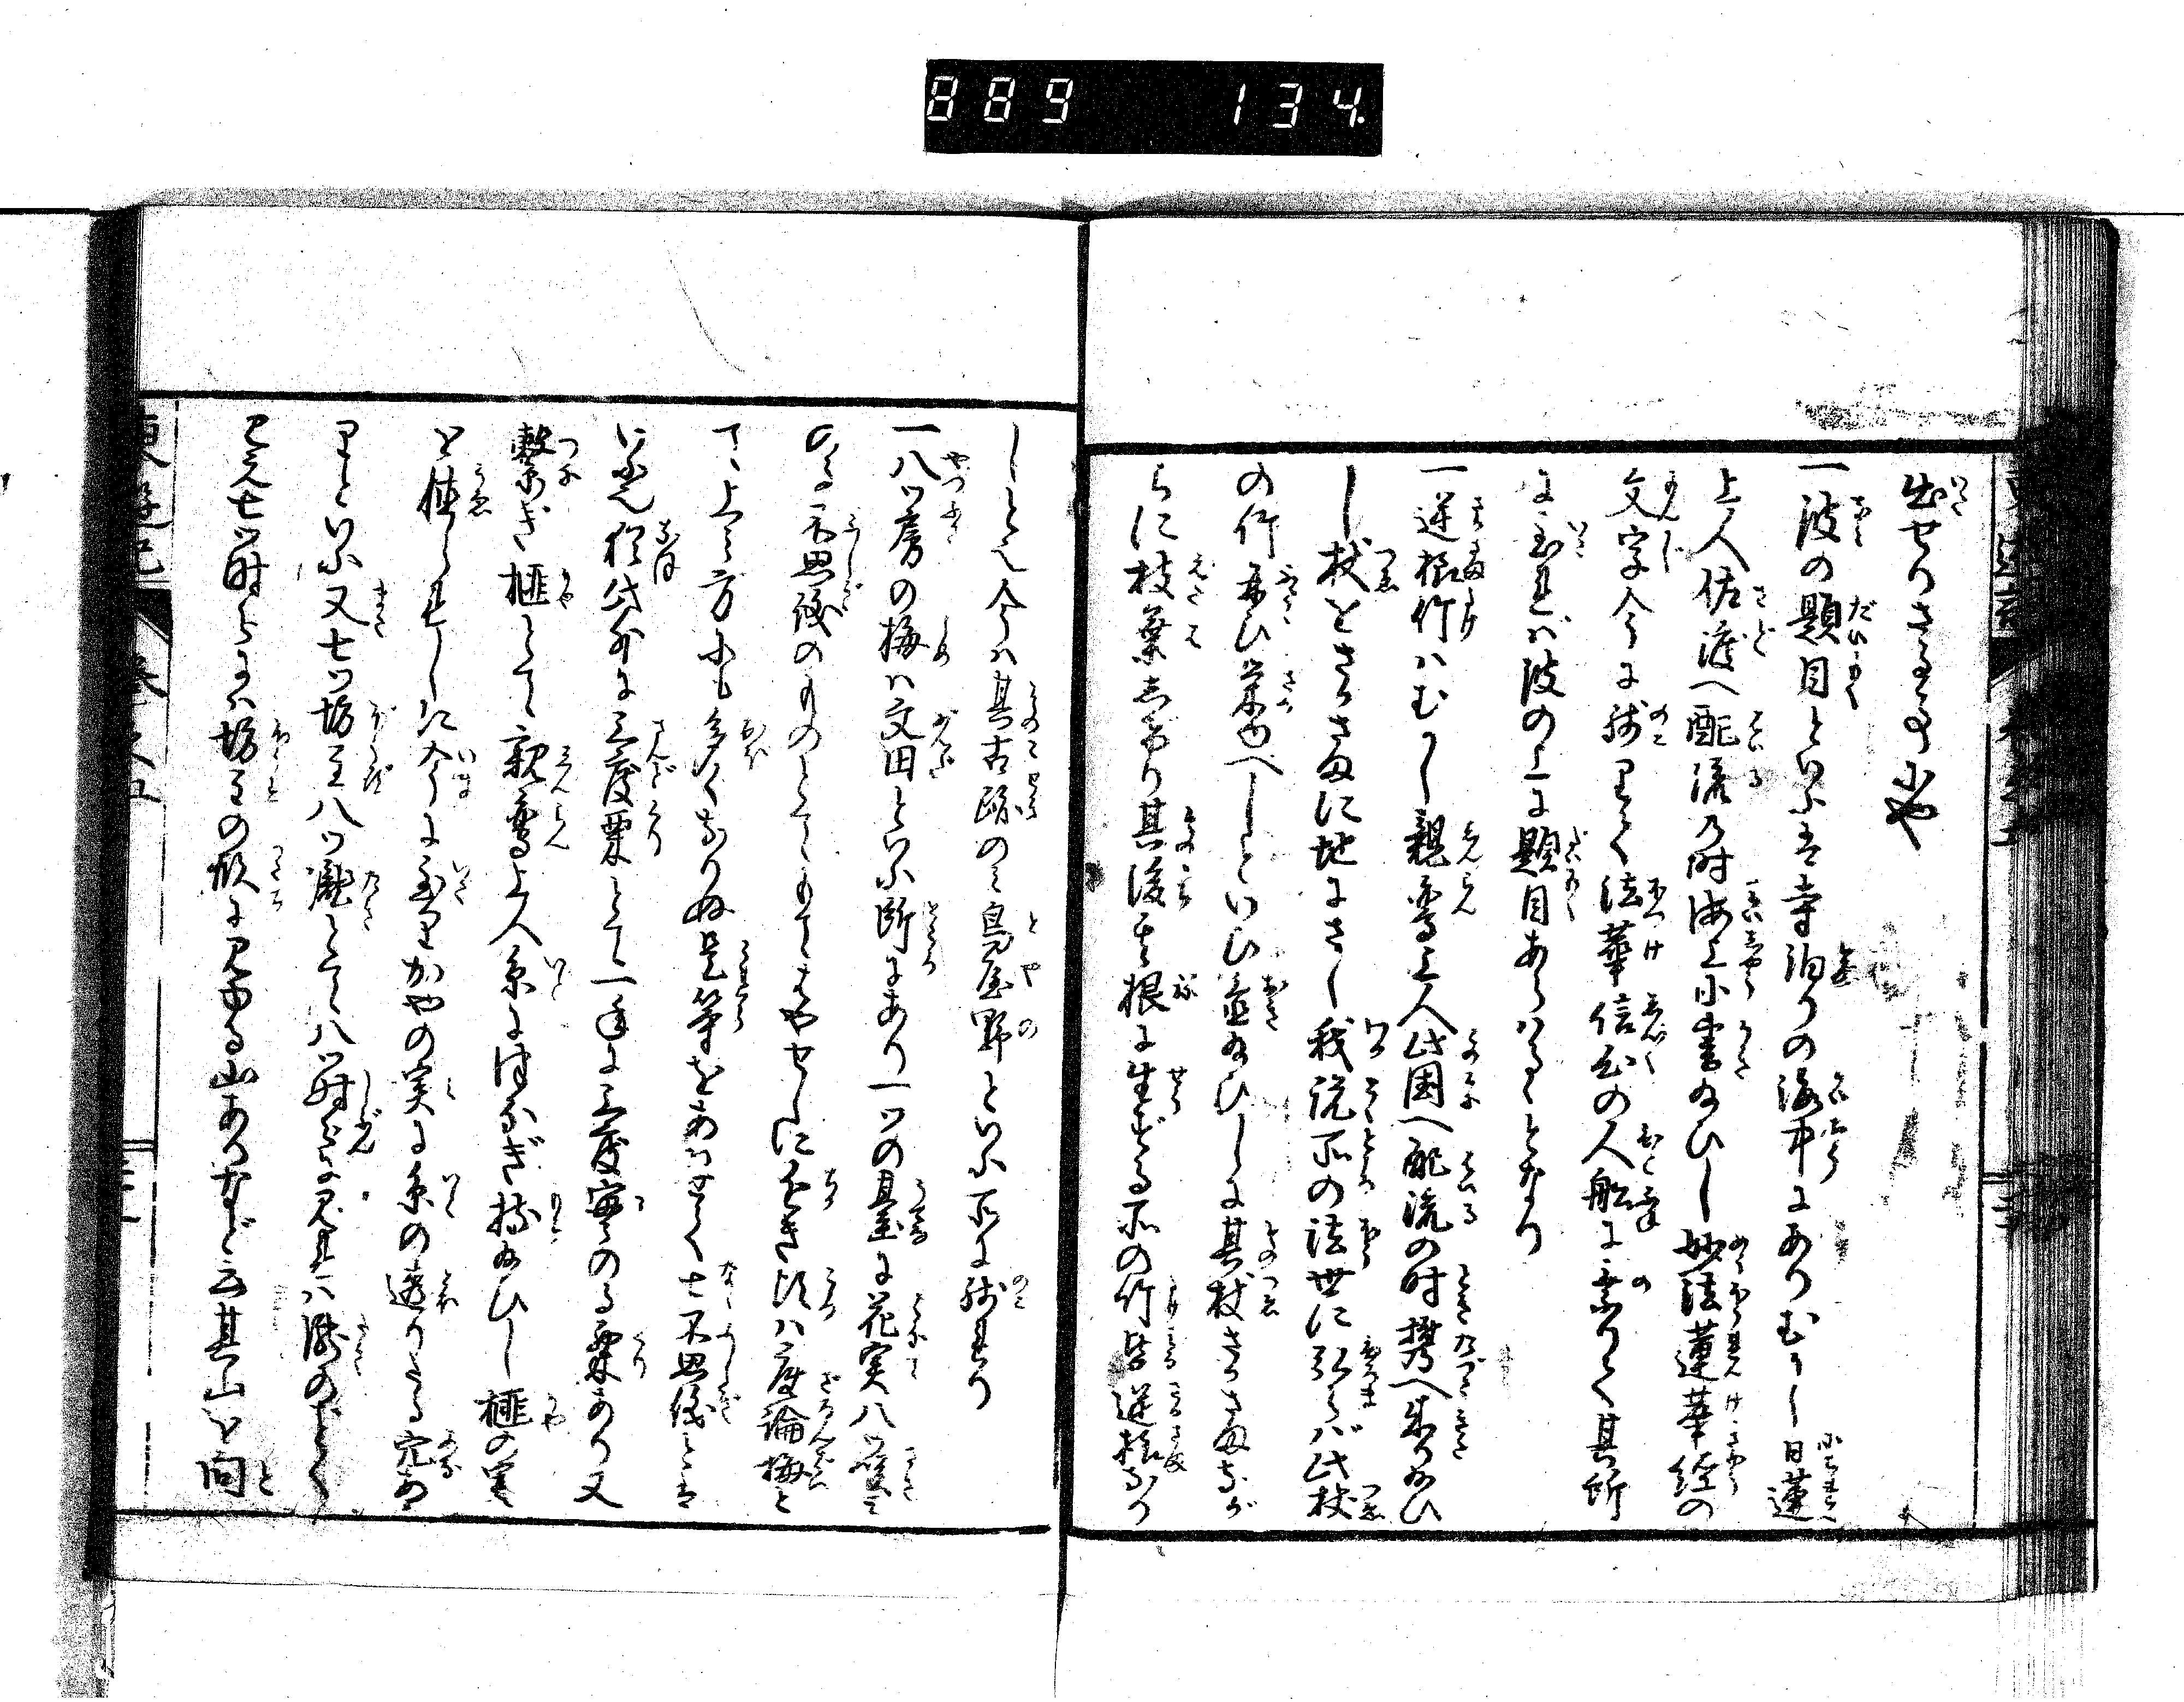 889 134
出せりさる事にや
一波の題目といふは寺泊りの海中にありむかし日蓮
上人佐渡へ配流の時海上に書給ひし妙法蓮華経の
文字今に残りて法華信心の人船に乗りて其所
に至れば波の上に題目あらはるゝとなり
一逆根竹はむかし親鸞上人此国へ配流の時携へ来り給ひ
し杖をさかさまに地にさし我説所の法世に弘らば此杖
の竹再ひ栄ゆべしといひ置給ひしに其杖さかさまなが
らに枝葉しげり其後其根に生ずる所の竹皆逆根なり
しとそ今は其古跡のミ鳥屋野といふ所に残れり
一八ツ房の梅は文田といふ所にあり一ツの蔓に花実八ツ宛ミ
のる不思儀のものとてもてはやせしに近き頃は座論梅と
て上ミ方にも多くなりぬ是等をあはせて七不思儀とは
いふ也猶此外に三度栗とて一年に三度実のる栗あり又
繋ぎ榧とて親鸞上人糸につなぎ持給ひし榧の実
を植られしに今に至りかやの実に糸の通りたる穴あ
りといふ又七ツ坊主八ツ瀧とて八ツ時分に見れは瀧のごとく
見え七ツ時よりは坊主の形に見ゆる山あるなど云其山を問
東遊記 巻之五